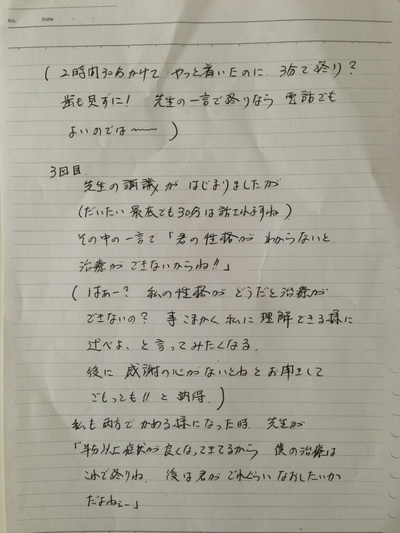 No.
Date
( 2時間30分かけて やっと着いたのに 3分で終り?
歯も見ずに! 先生の一言で終りなら 電話でも
よいのでは〜〜 )
3回目.
先生の講議が はじまりましたが
(だいたい 最低でも30分は話されますね )
その中の一言で「君の性格が わからないと
治療が できないからね!!」
( はぁー? 私の性格が どうだと治療が
できないの? 事こまかく 私に理解できる様に
述べよ、と言ってみたくなる.
後に 感謝の心がないとね とお聞きして
ごもっとも!! と 納得. )
私も両方でかめる様になった時 先生が
「半分以上症状が良くなってきてるから 僕の治療は
これで終りね. 後は君が どれぐらい なおしたいか
だよねぇー」